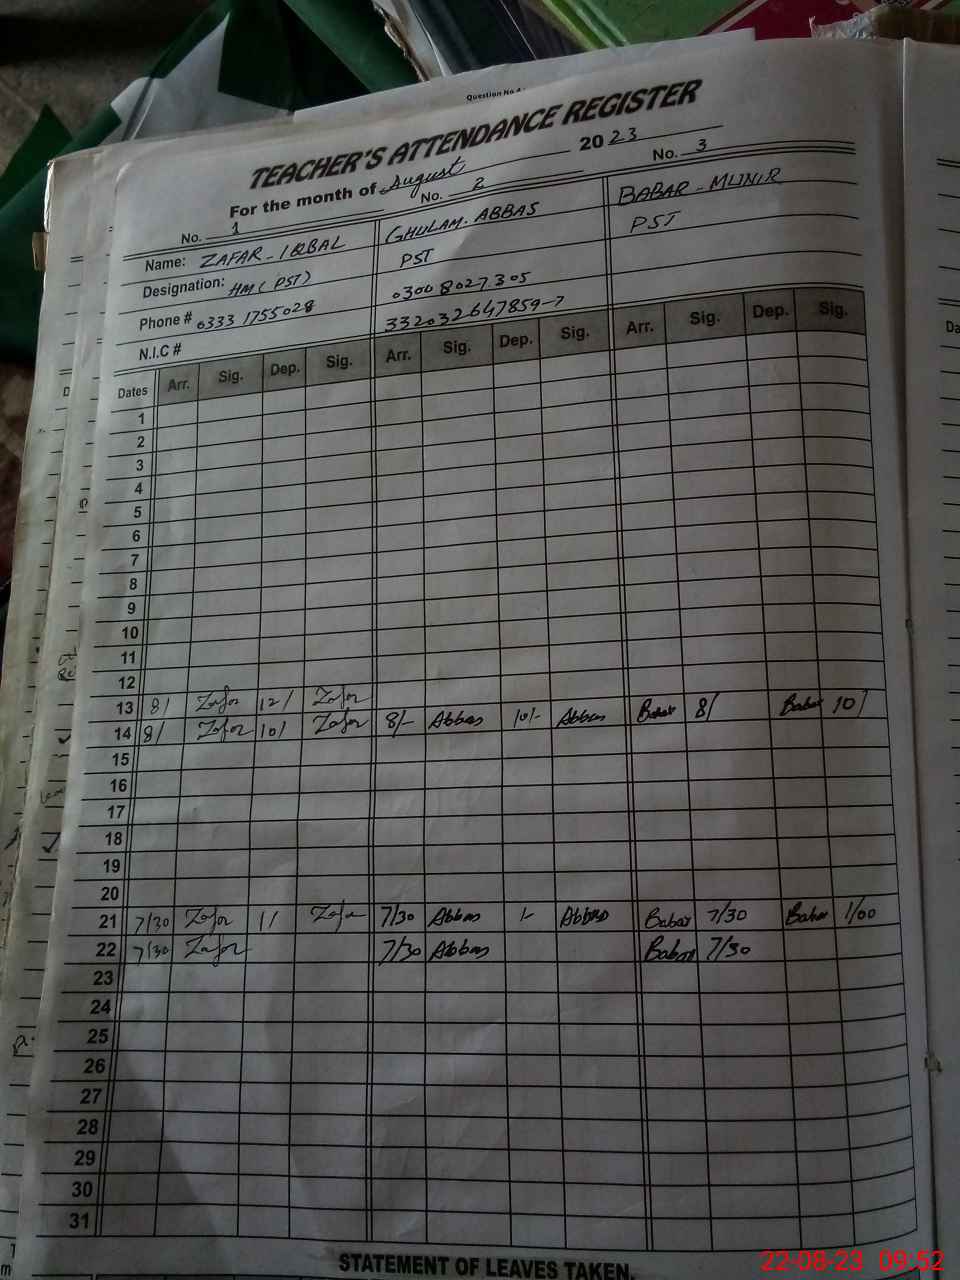 Question No 4
TEACHER'S ATTENDANCE REGISTER
For the month of August 2023
No. 1 No. 2 No. 3
Name: ZAFAR-IQBAL GHULAM.ABBAS BABAR-MUNIR
Designation: HM (PST) PST PST
Phone # 0333 1755028 0300 8027305
N.I.C # 332032647859-7
Dates Arr. Sig. Dep. Sig. Arr. Sig. Dep. Sig. Arr. Sig. Dep. Sig.
1
2
3
4
5
6
7
8
9
10
11
12
13 8/ Zafar 12/ Zafar
14 8/ Zafar 10/ Zafar 8/- Abbas 10/- Abbas Babar 8/ Babar 10/
15
16
17
18
19
20
21 7/30 Zafar 1/ Zafar 7/30 Abbas 1- Abbas Babar 7/30 Babar 1/00
22 7/30 Zafar 7/30 Abbas Babar 7/30
23
24
25
26
27
28
29
30
31
STATEMENT OF LEAVES TAKEN.
22-08-23 09:52